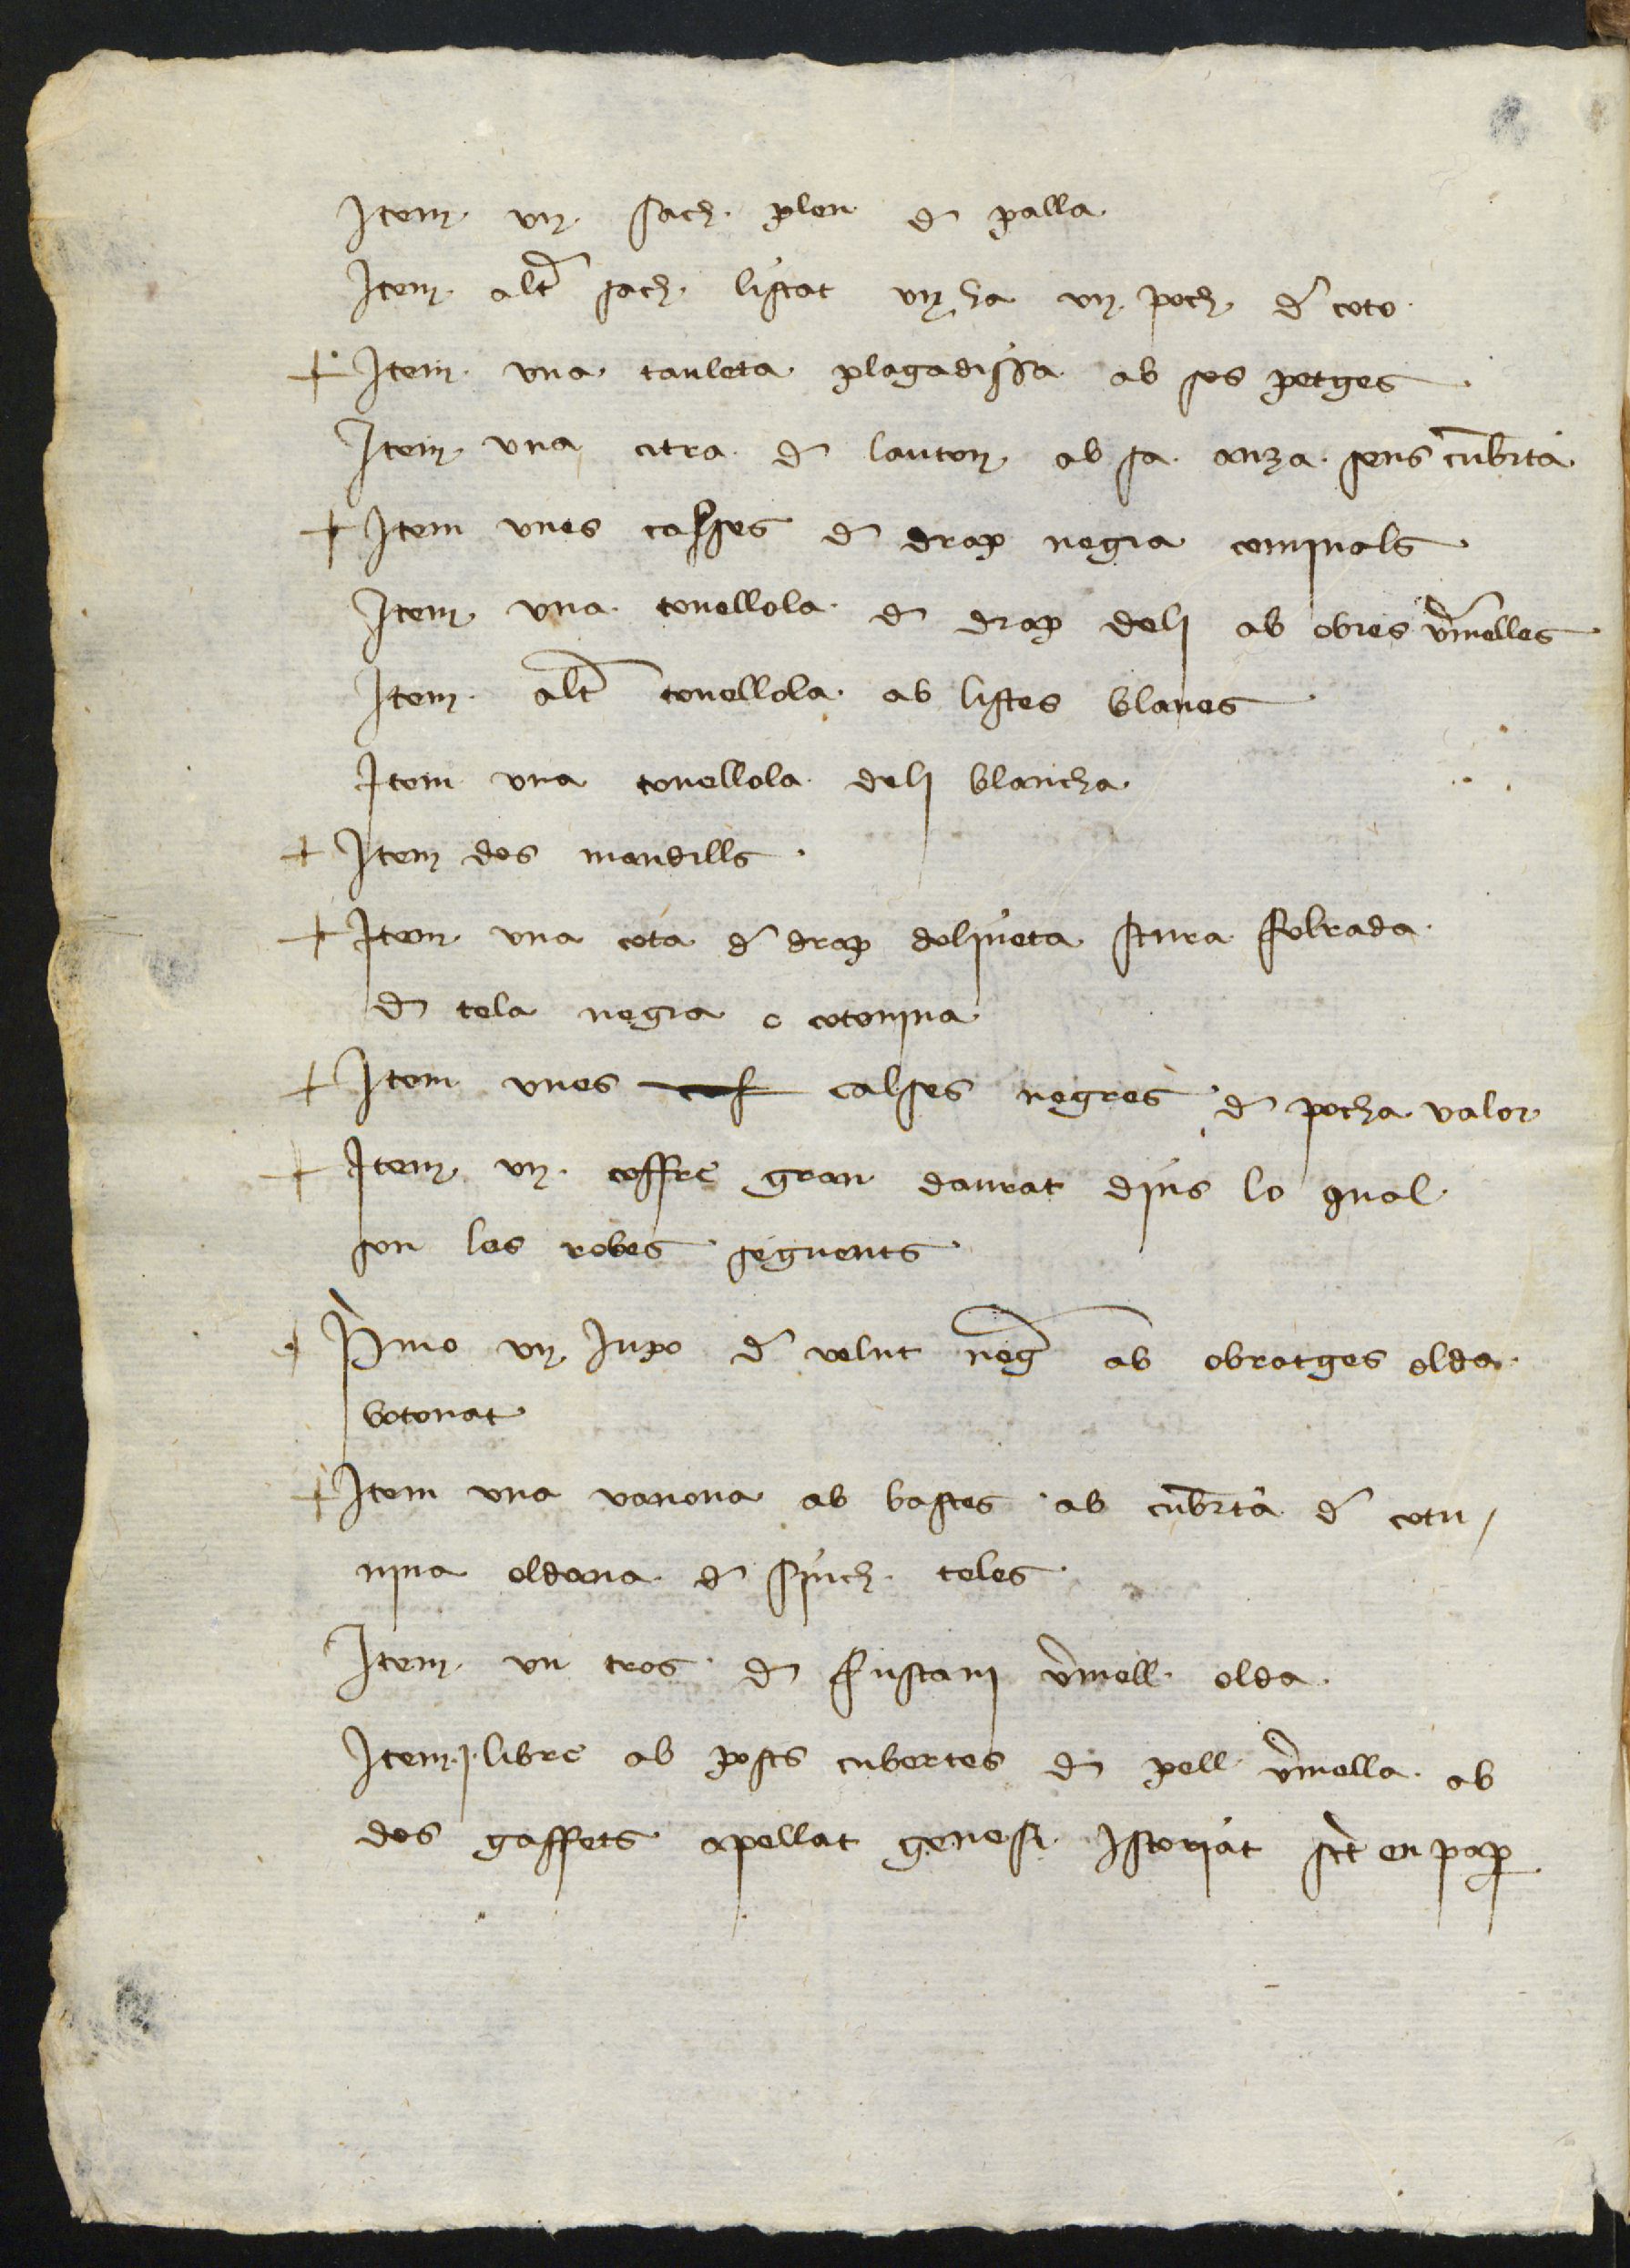 Item un sach plen de palla
Item altr sach listat un ha un poch de coto
+ Item una tauleta plagadissa ab ses petges
Item una citra de lauton ab sa anza sens cubrta
+ Item unes calses de drap negra cominals
Item una tovellola de drap deli ab obres vrmelles
Item altr tovellola ab listes blaves
Item una tovellola deli blancha
+ Item dos mandills
+ Item una cota de drap de scura folrada
de tela negra o cotonina
+ Item unes calses negres de pocha valor
+ Item un coffre gran daurat dins lo qual
son les robes seguents
+ Pmo un jupo de velut negr ab obratges olda
botonat
+ Item una vanova ab bastes ab cubrta de cotu
nina oldana de sinch teles
Item un tros de fustani vrmell olda
Item j libre ab posts cubertes de pell vrmella ab
dos gaffets apellat genesi istoriat scrt en pap